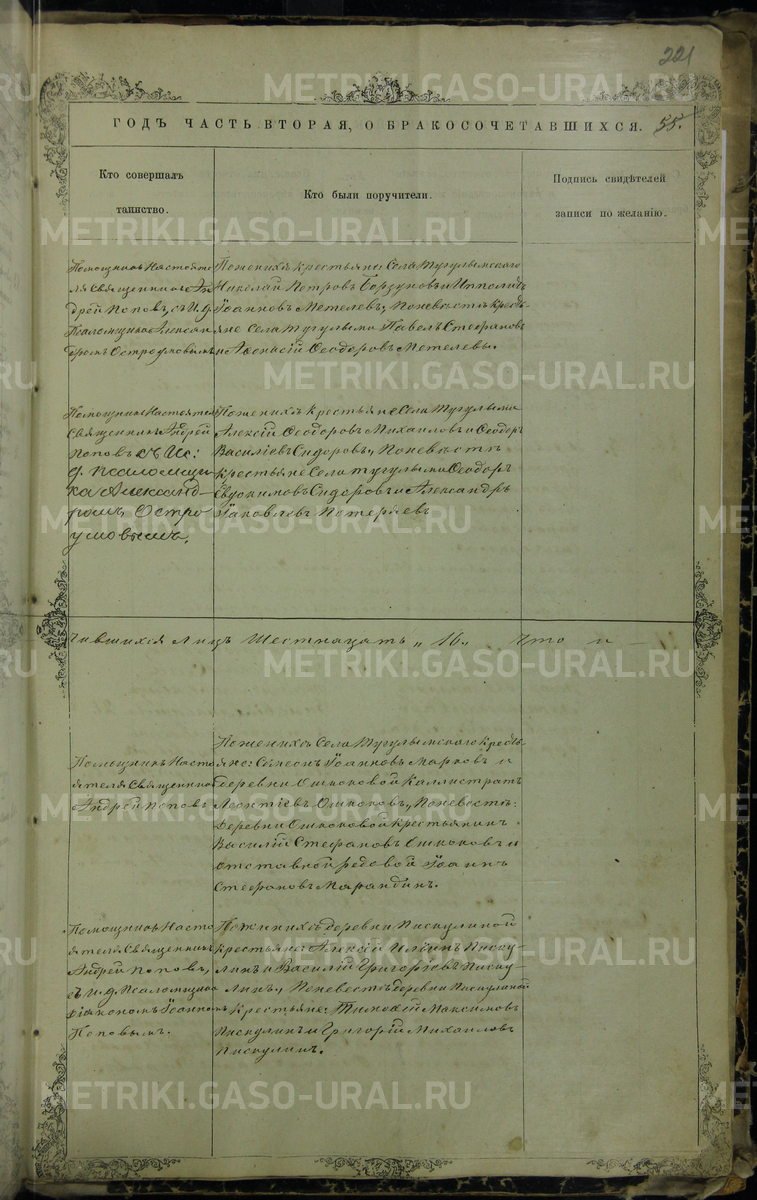 221
ГОДЪ ЧАСТЬ ВТОРАЯ, О БРАКОСОЧЕТАВШИХСЯ. 55.
Кто совершалъ
таинство.
Кто были поручители.
Подпись свидѣтелей
записи по желанію.
Помощникъ Настояте
ля Священникъ Ан
дрей Поповъ, съ И. д.
Псаломщика Алексан
дромъ Остроумовымъ
По женихѣ крестьяне: Села Тугулымскаго
Николай Петровъ и Ипполитъ
Іоанновъ Метелевъ, По невѣстѣ Кресть
яне Села Тугулыма Павелъ Стефановъ
и Аѳанасій Ѳеодоровъ Метелевы.
Помощникъ Настоятеля
Священникъ Андрей
Поповъ съ Ис:
д. псаломщи
ка Александ-
ромъ Остро
умовымъ.
По женихѣ крестьяне Села Тугулыма
Алексій Ѳеодоровъ Михаиловъ и Ѳеодоръ
Василіевъ Сидоровъ, По невѣстѣ
крестьяне Села Тугулыма Ѳеодоръ
Евдокимовъ Сидоровъ и Александръ
Іаковлевъ Потеряевъ
чившихся лицъ Шестнацать „16„ Что и
Помощникъ Насто
ятеля Священникъ
Андрей Поповъ
По женихѣ Села Тугулымскаго кресть
яне: Сѵмеонъ Іоанновъ Марковъ и
деревни Ошкоковой Каллистратъ
Леонтіевъ Ошкоковъ, По невѣстѣ:
деревни Ошкоковой крестьянинъ
Василій Стефановъ Ошкоковъ и
отставной рядовой Іоаннъ
Стефановъ Марандинъ.
Помощникъ Насто
ятеля Священникъ
Андрей Поповъ,
съ И. д. Псаломщика
діакономъ Іоанномъ
Поповымъ.
По женихѣ деревни Пискулиной
крестьяне: Алексій Ильинъ Писку-
линъ и Василій Григоріевъ Писку
линъ, По невѣстѣ деревни Пискулиной
крестьяне: Тимоѳей Максимовъ
Пискулинъ и Григорій Михаиловъ
Пискулинъ.
METRIKI.GASO-URAL.RU